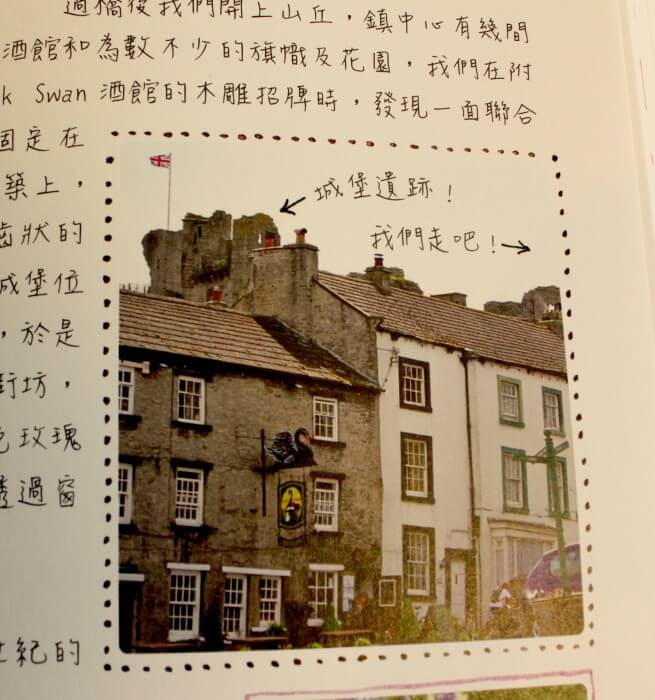 過橋後我們開上山丘，鎮中心有幾間
酒館和為數不少的旗幟及花園，我們在附
k Swan 酒館的木雕招牌時，發現一面聯合
固定在
築上，
齒狀的
城堡位
，於是
街坊，
色玫瑰
透過窗
世紀的
城堡遺跡！
我們走吧！